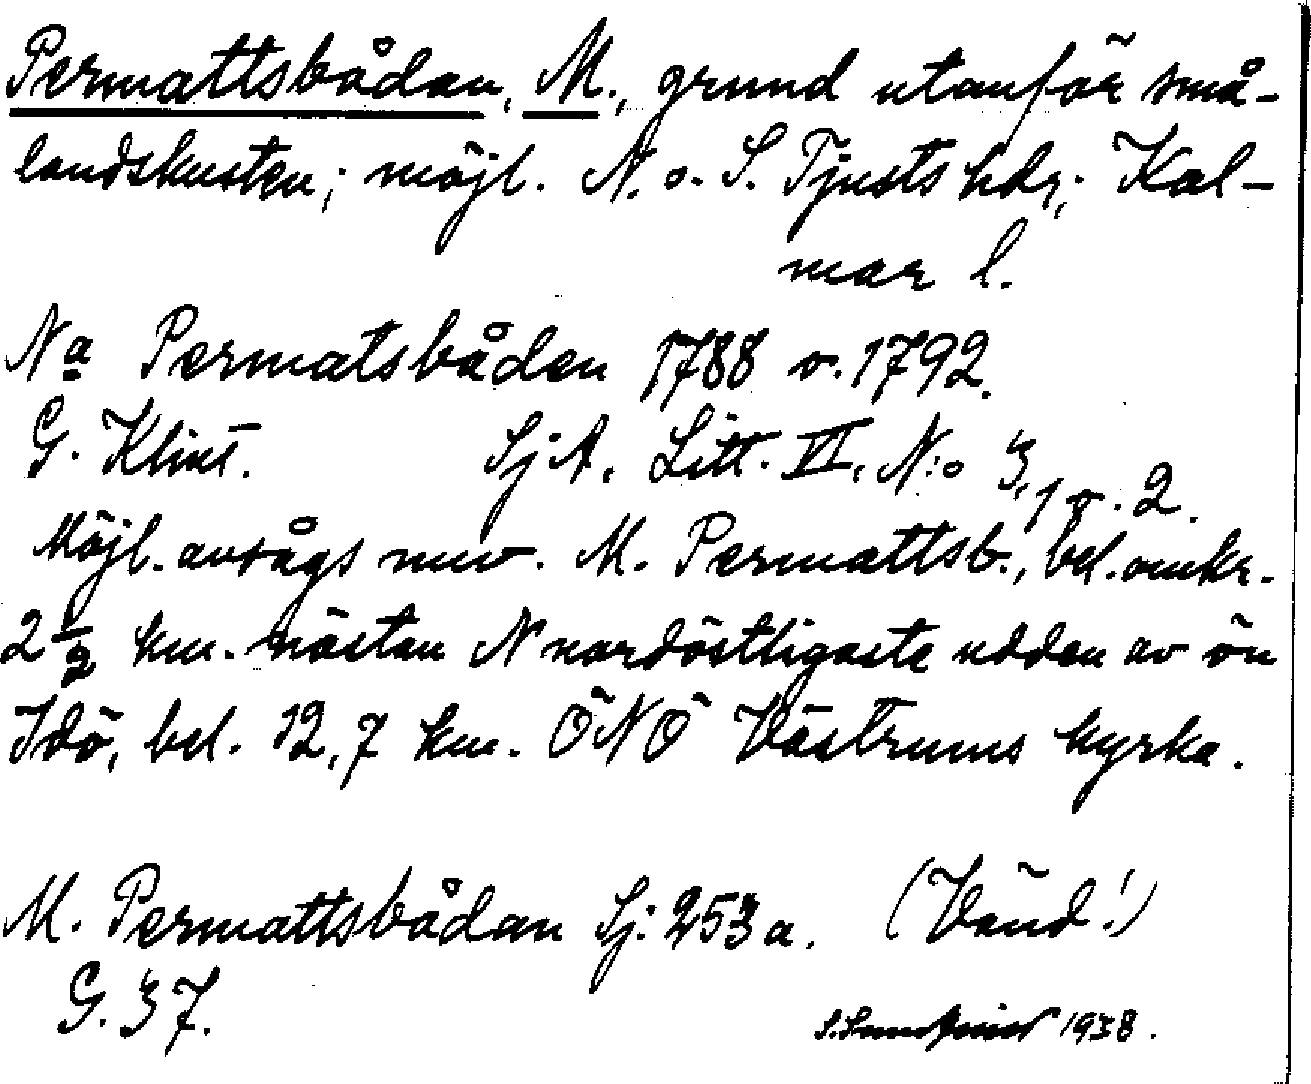 Permattsbådan, M., grund utanför små-
landskusten; möjl. N. o. S. Tjusts hdr; Kal-
mar l.
Na Permatsbåden 1788 o. 1792.
G. Klint. SjA, Litt. VI, N:o 3, 1 o. 2.
Möjl. avsågs nuv. M. Permattsb., bel. omkr.
2 1/2 km. nästan N nordöstligaste udden av ön
Idö, bel. 12,7 km. ÖNÖ Västrums kyrka.
M. Permattsbådan Sj: 253 a. (Vänd!)
G. 37.
1938.